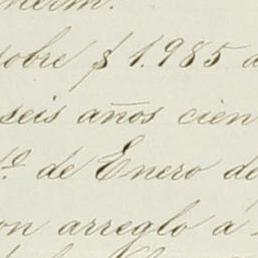 sobre $1.985 a
seis años cien
1º de Enero de
on arreglo á